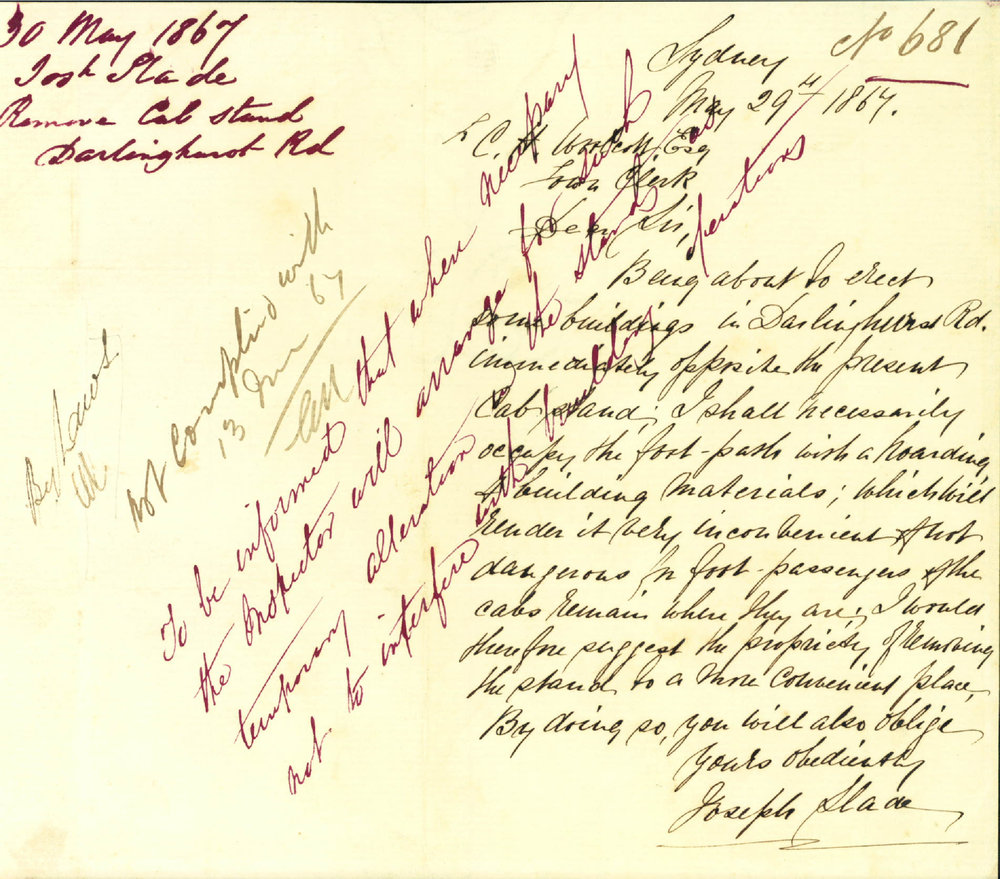 30 May 1867
Josh Slade
Remove Cab stand
Darlinghurst Rd
No 681
Sydney
May 29th 1867.
C. H. Woolcott, Esq
Town Clerk
Dear Sir,
Being about to erect
some buildings in Darlinghurst Rd.
immediately opposite the present
Cab stand; I shall necessarily
occupy the foot-path with a hoarding
& building materials; which will
render it very inconvenient if not
dangerous for foot-passengers if the
cabs remain where they are; I would
therefore suggest the propriety of removing
the stand to a more convenient place,
By doing so, you will also oblige
Yours obediently
Joseph Slade
To be informed that when necessary
the Inspector will arrange for such
temporary alteration of the stand as
not to interfere with building operations
Not Complied with
13 June 67
By Laws